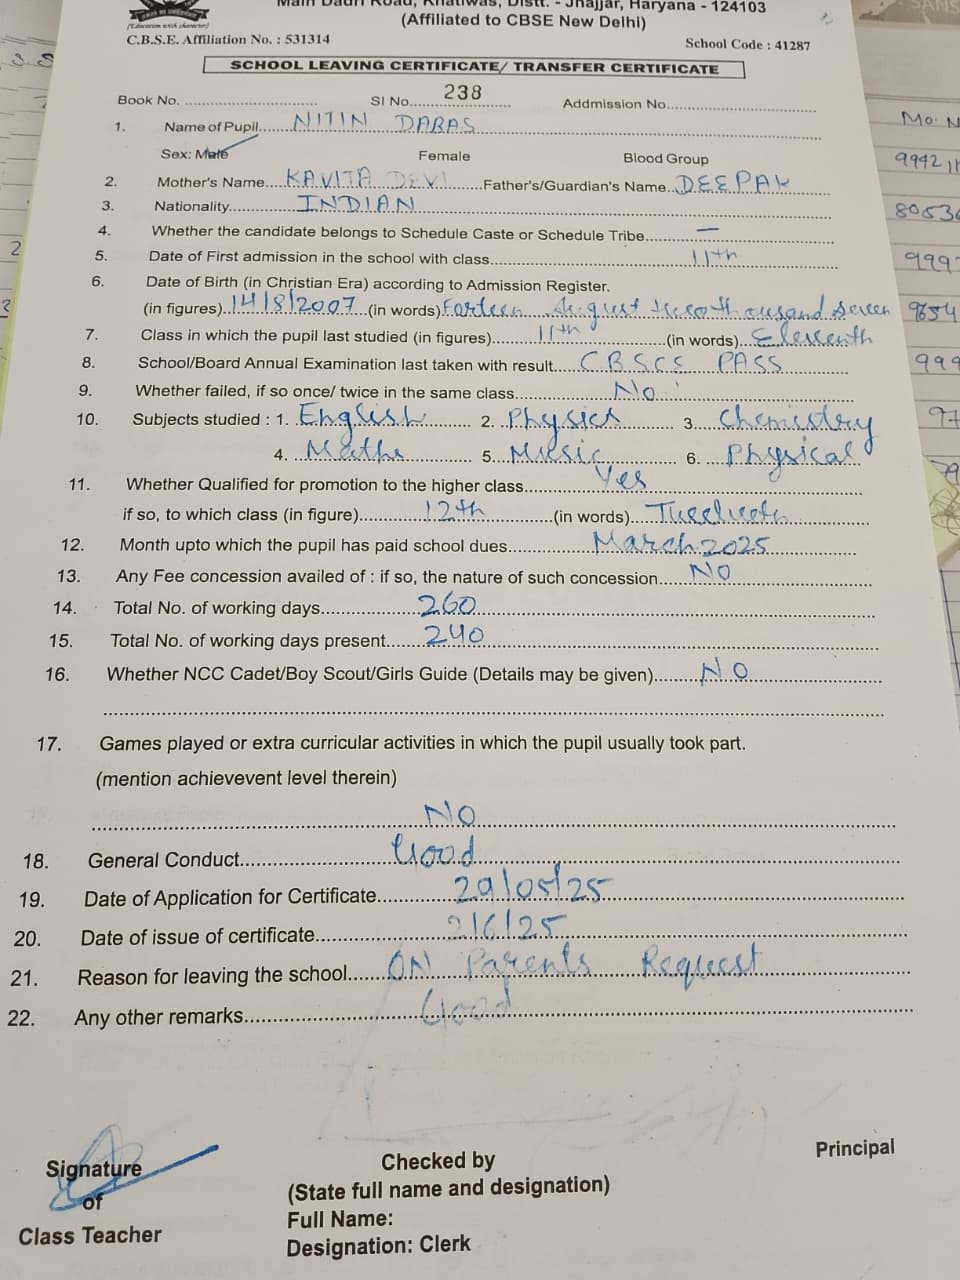 Main Dadri Road, Khatiwas, Distt. - Jhajjar, Haryana - 124103
(Education with character)
(Affiliated to CBSE New Delhi)
C.B.S.E. Affiliation No. : 531314
School Code : 41287
SCHOOL LEAVING CERTIFICATE/ TRANSFER CERTIFICATE
Book No. .......... Sl No. 238 Addmission No..........
1. Name of Pupil.... NITIN DABAS
Sex: Male Female Blood Group
2. Mother's Name.... KAVITA DEVI ....Father's/Guardian's Name.. DEEPAK
3. Nationality.......... INDIAN
4. Whether the candidate belongs to Schedule Caste or Schedule Tribe.......... —
5. Date of First admission in the school with class.......... 11th
6. Date of Birth (in Christian Era) according to Admission Register.
(in figures).. 14/8/2007 ..(in words) Forteen August two thousand seven
7. Class in which the pupil last studied (in figures).......... 11th ..........(in words)... Eleventh
8. School/Board Annual Examination last taken with result..... C.B.S.C.E PASS
9. Whether failed, if so once/ twice in the same class.......... No
10. Subjects studied : 1. English 2. Physics 3. Chemistry
4. Maths 5. Music 6. Physical
11. Whether Qualified for promotion to the higher class.......... Yes
if so, to which class (in figure).......... 12th ..........(in words)..
12. Month upto which the pupil has paid school dues.......... March 2025
13. Any Fee concession availed of : if so, the nature of such concession..... NO
14. Total No. of working days.......... 260
15. Total No. of working days present....... 240
16. Whether NCC Cadet/Boy Scout/Girls Guide (Details may be given)....... NO
17. Games played or extra curricular activities in which the pupil usually took part.
(mention achievevent level therein)
NO
18. General Conduct.......... Good
19. Date of Application for Certificate.......... 29/05/25
20. Date of issue of certificate.......... 2/6/25
21. Reason for leaving the school..... ON Parents Request
22. Any other remarks.......... Good
Signature
of
Class Teacher
Checked by
(State full name and designation)
Full Name:
Designation: Clerk
Principal